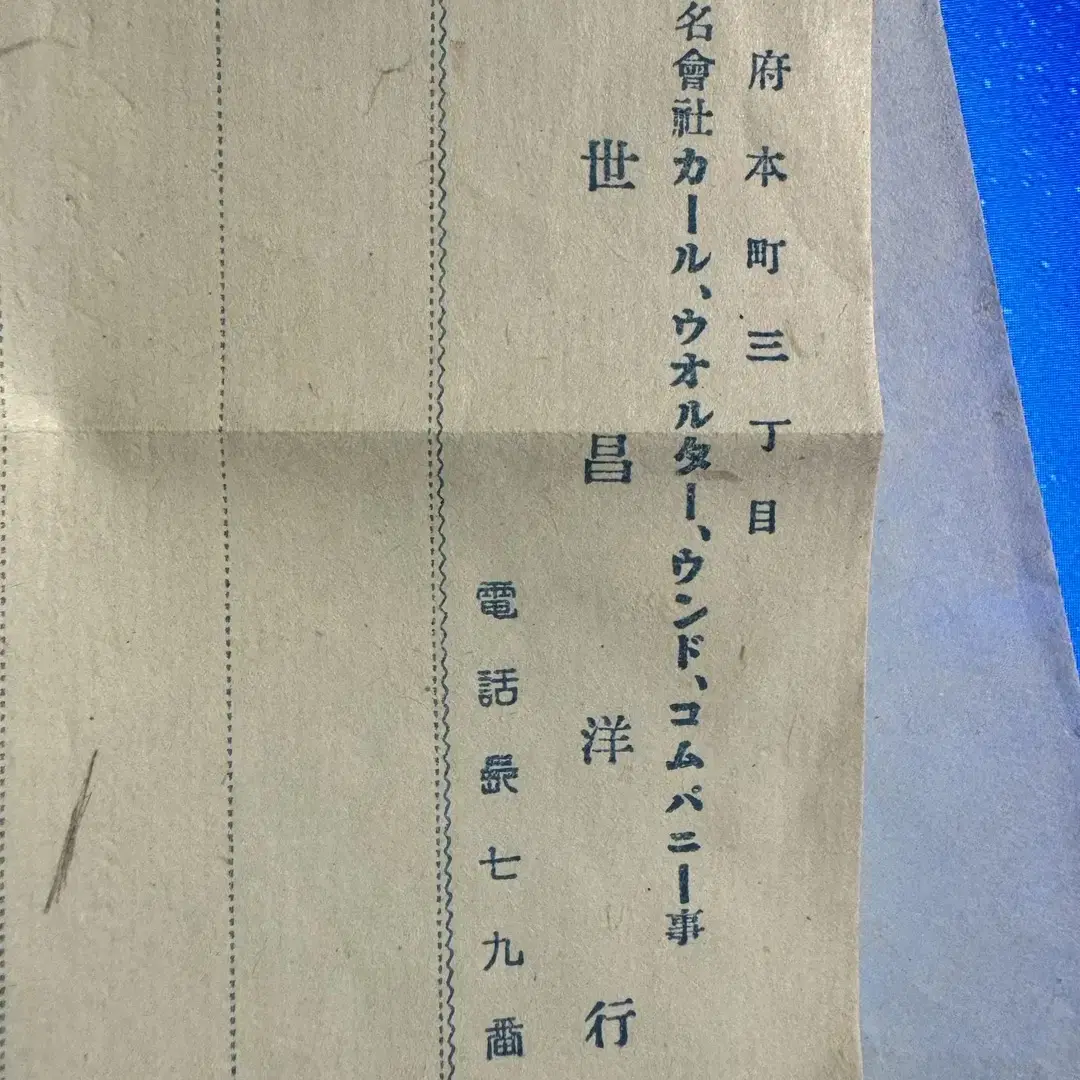 府本町三丁目
名會社カール、ウオルター、ウンド、コムパニー事
世昌洋行
電話長七九番